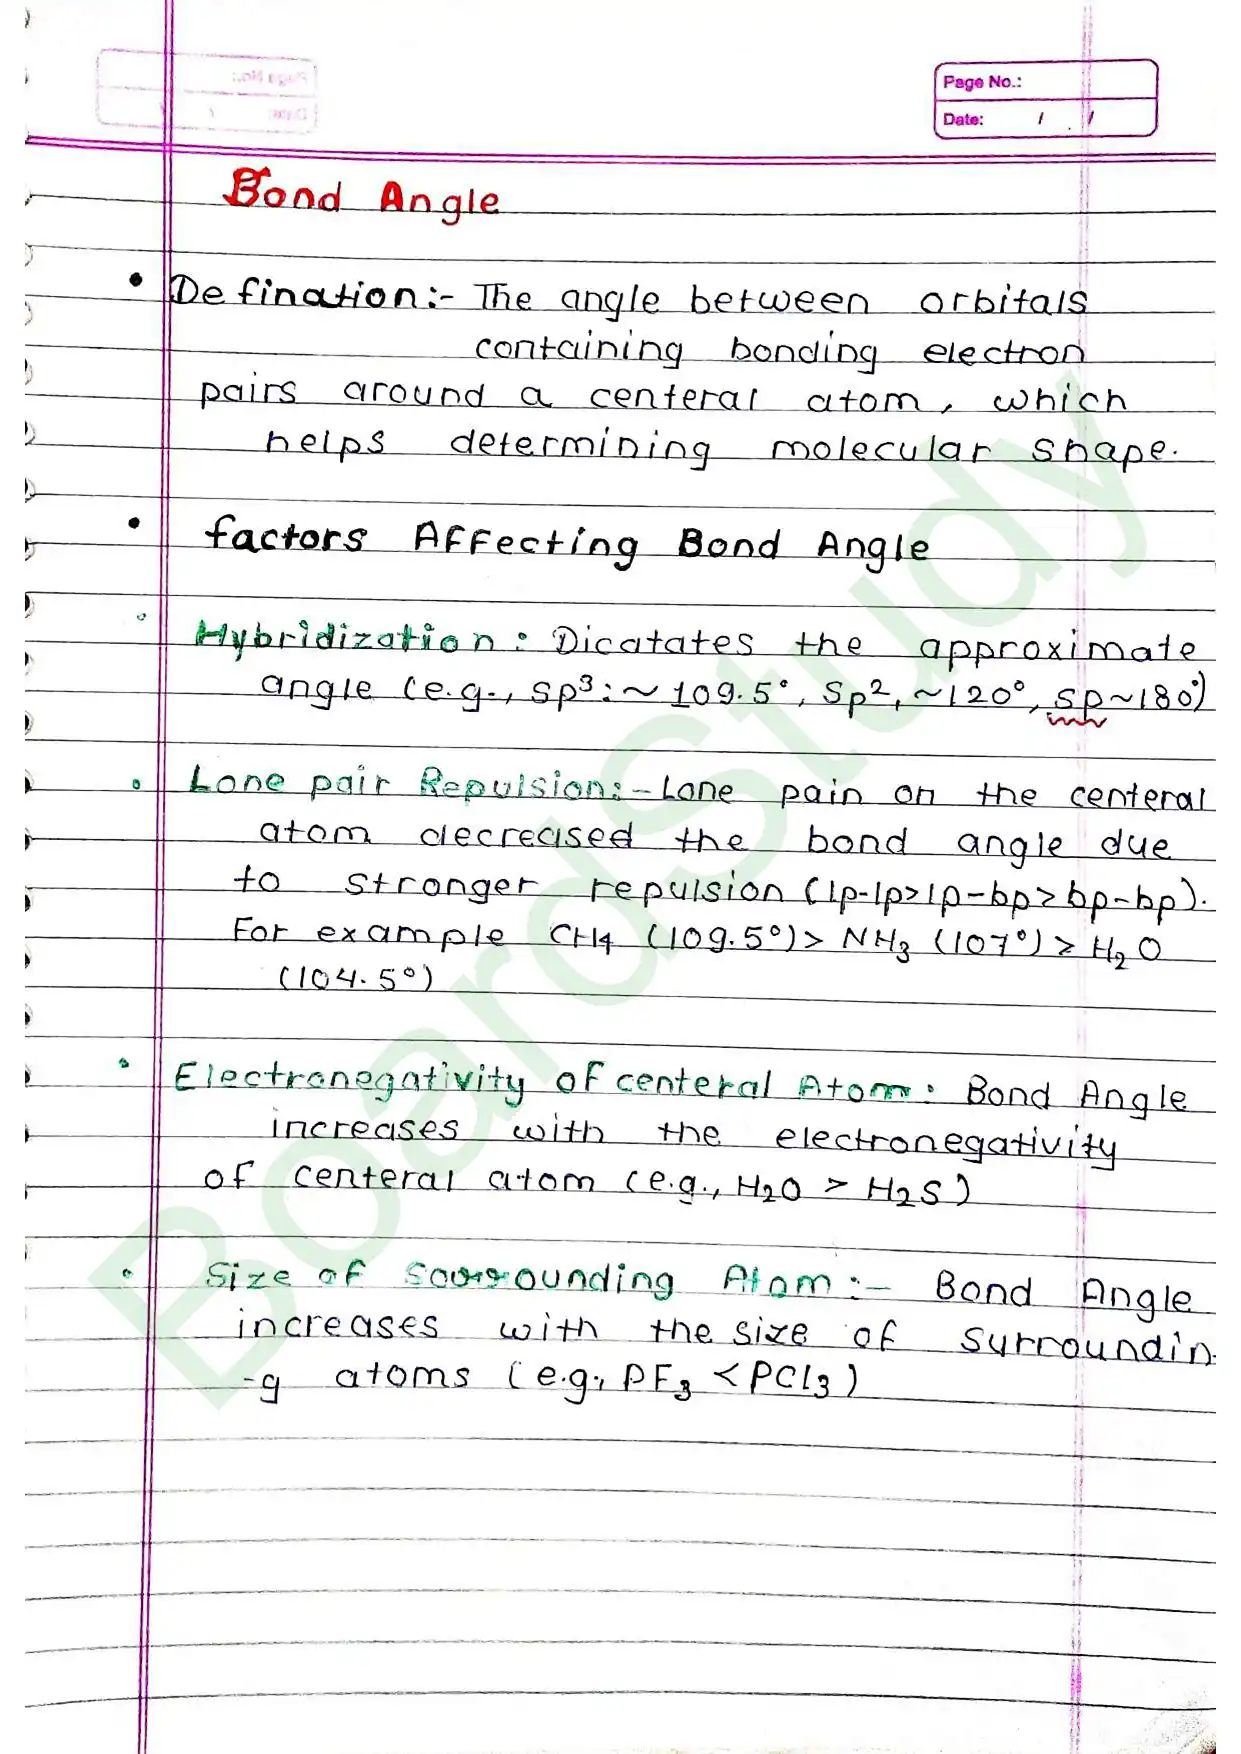 Page No.:
Date: / /
Bond Angle
• Defination:- The angle between orbitals
containing bonding electron
pairs around a centeral atom, which
helps determining molecular shape.
• factors Affecting Bond Angle
Hybridization: Dicatates the approximate
angle (e.g., sp³:~109.5°, Sp², ~120°, sp~180°)
Lone pair Repulsion:- Lone pain on the centeral
atom decreased the bond angle due
to stronger repulsion (lp-lp>lp-bp>bp-bp).
For example CH4 (109.5°) > NH3 (107°) > H2O
(104.5°)
Electronegativity of centeral Atom: Bond Angle
increases with the electronegativity
of centeral atom (e.g., H2O > H2S)
Size of Sourrounding Atom:- Bond Angle
increases with the size of surroundin
-g atoms (e.g., PF3 < PCl3)
BoardStudy